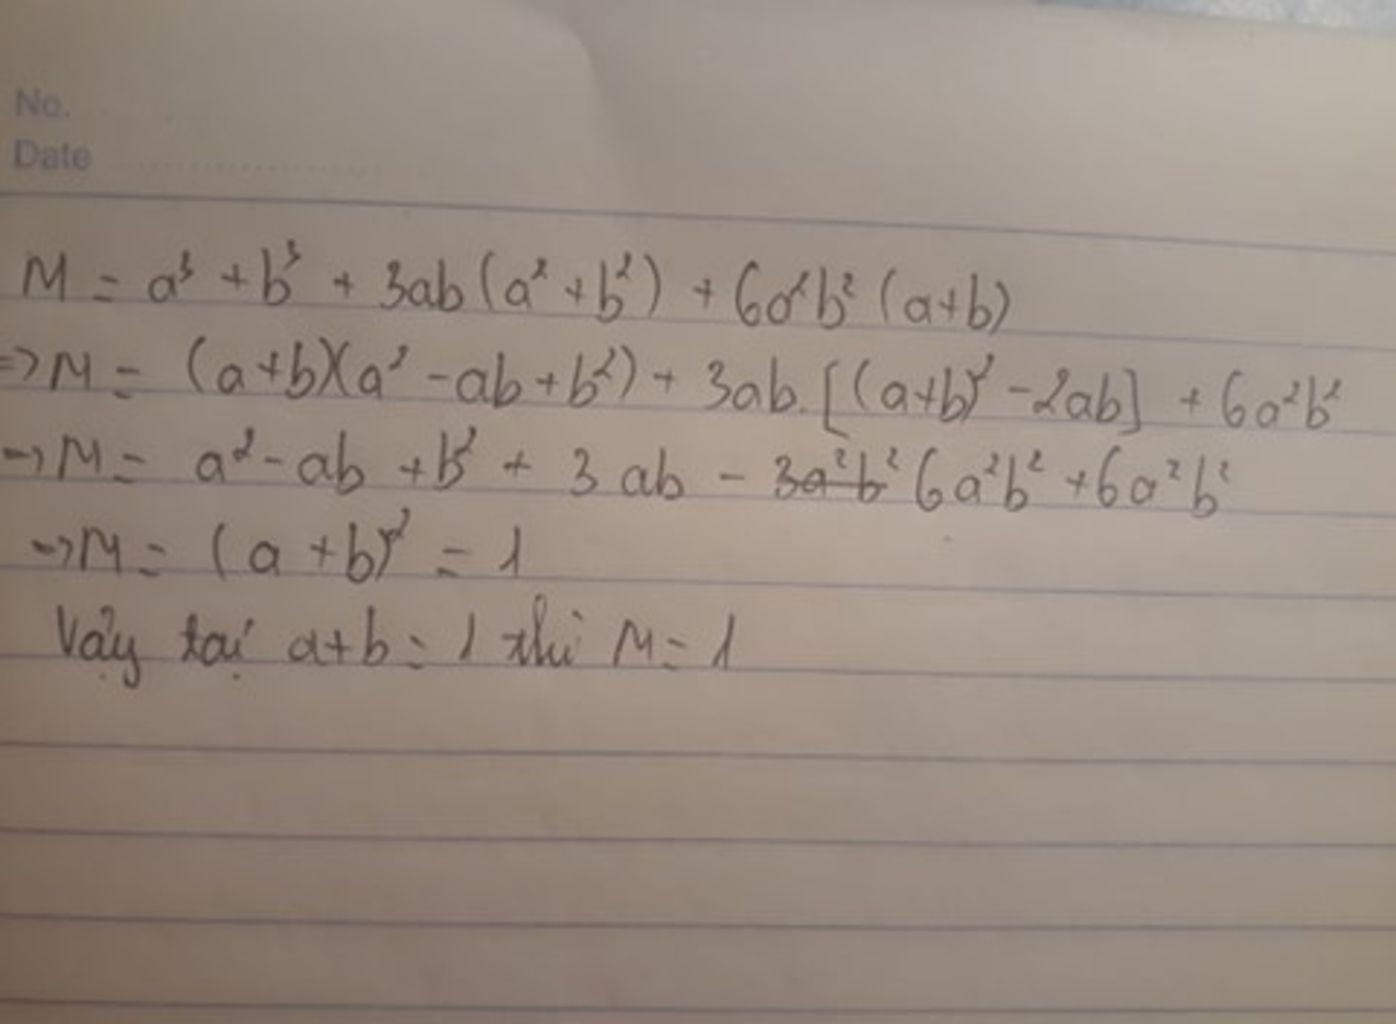 No.
Date
M = a³ + b³ + 3ab (a² + b²) + 6a²b² (a+b)
=> M = (a+b)(a² - ab + b²) + 3ab. [(a+b)² - 2ab] + 6a²b²
=> M = a² - ab + b² + 3ab - 3a²b² 6a²b² + 6a²b²
=> M = (a + b)² = 1
Vậy tại a+b = 1 thì M = 1